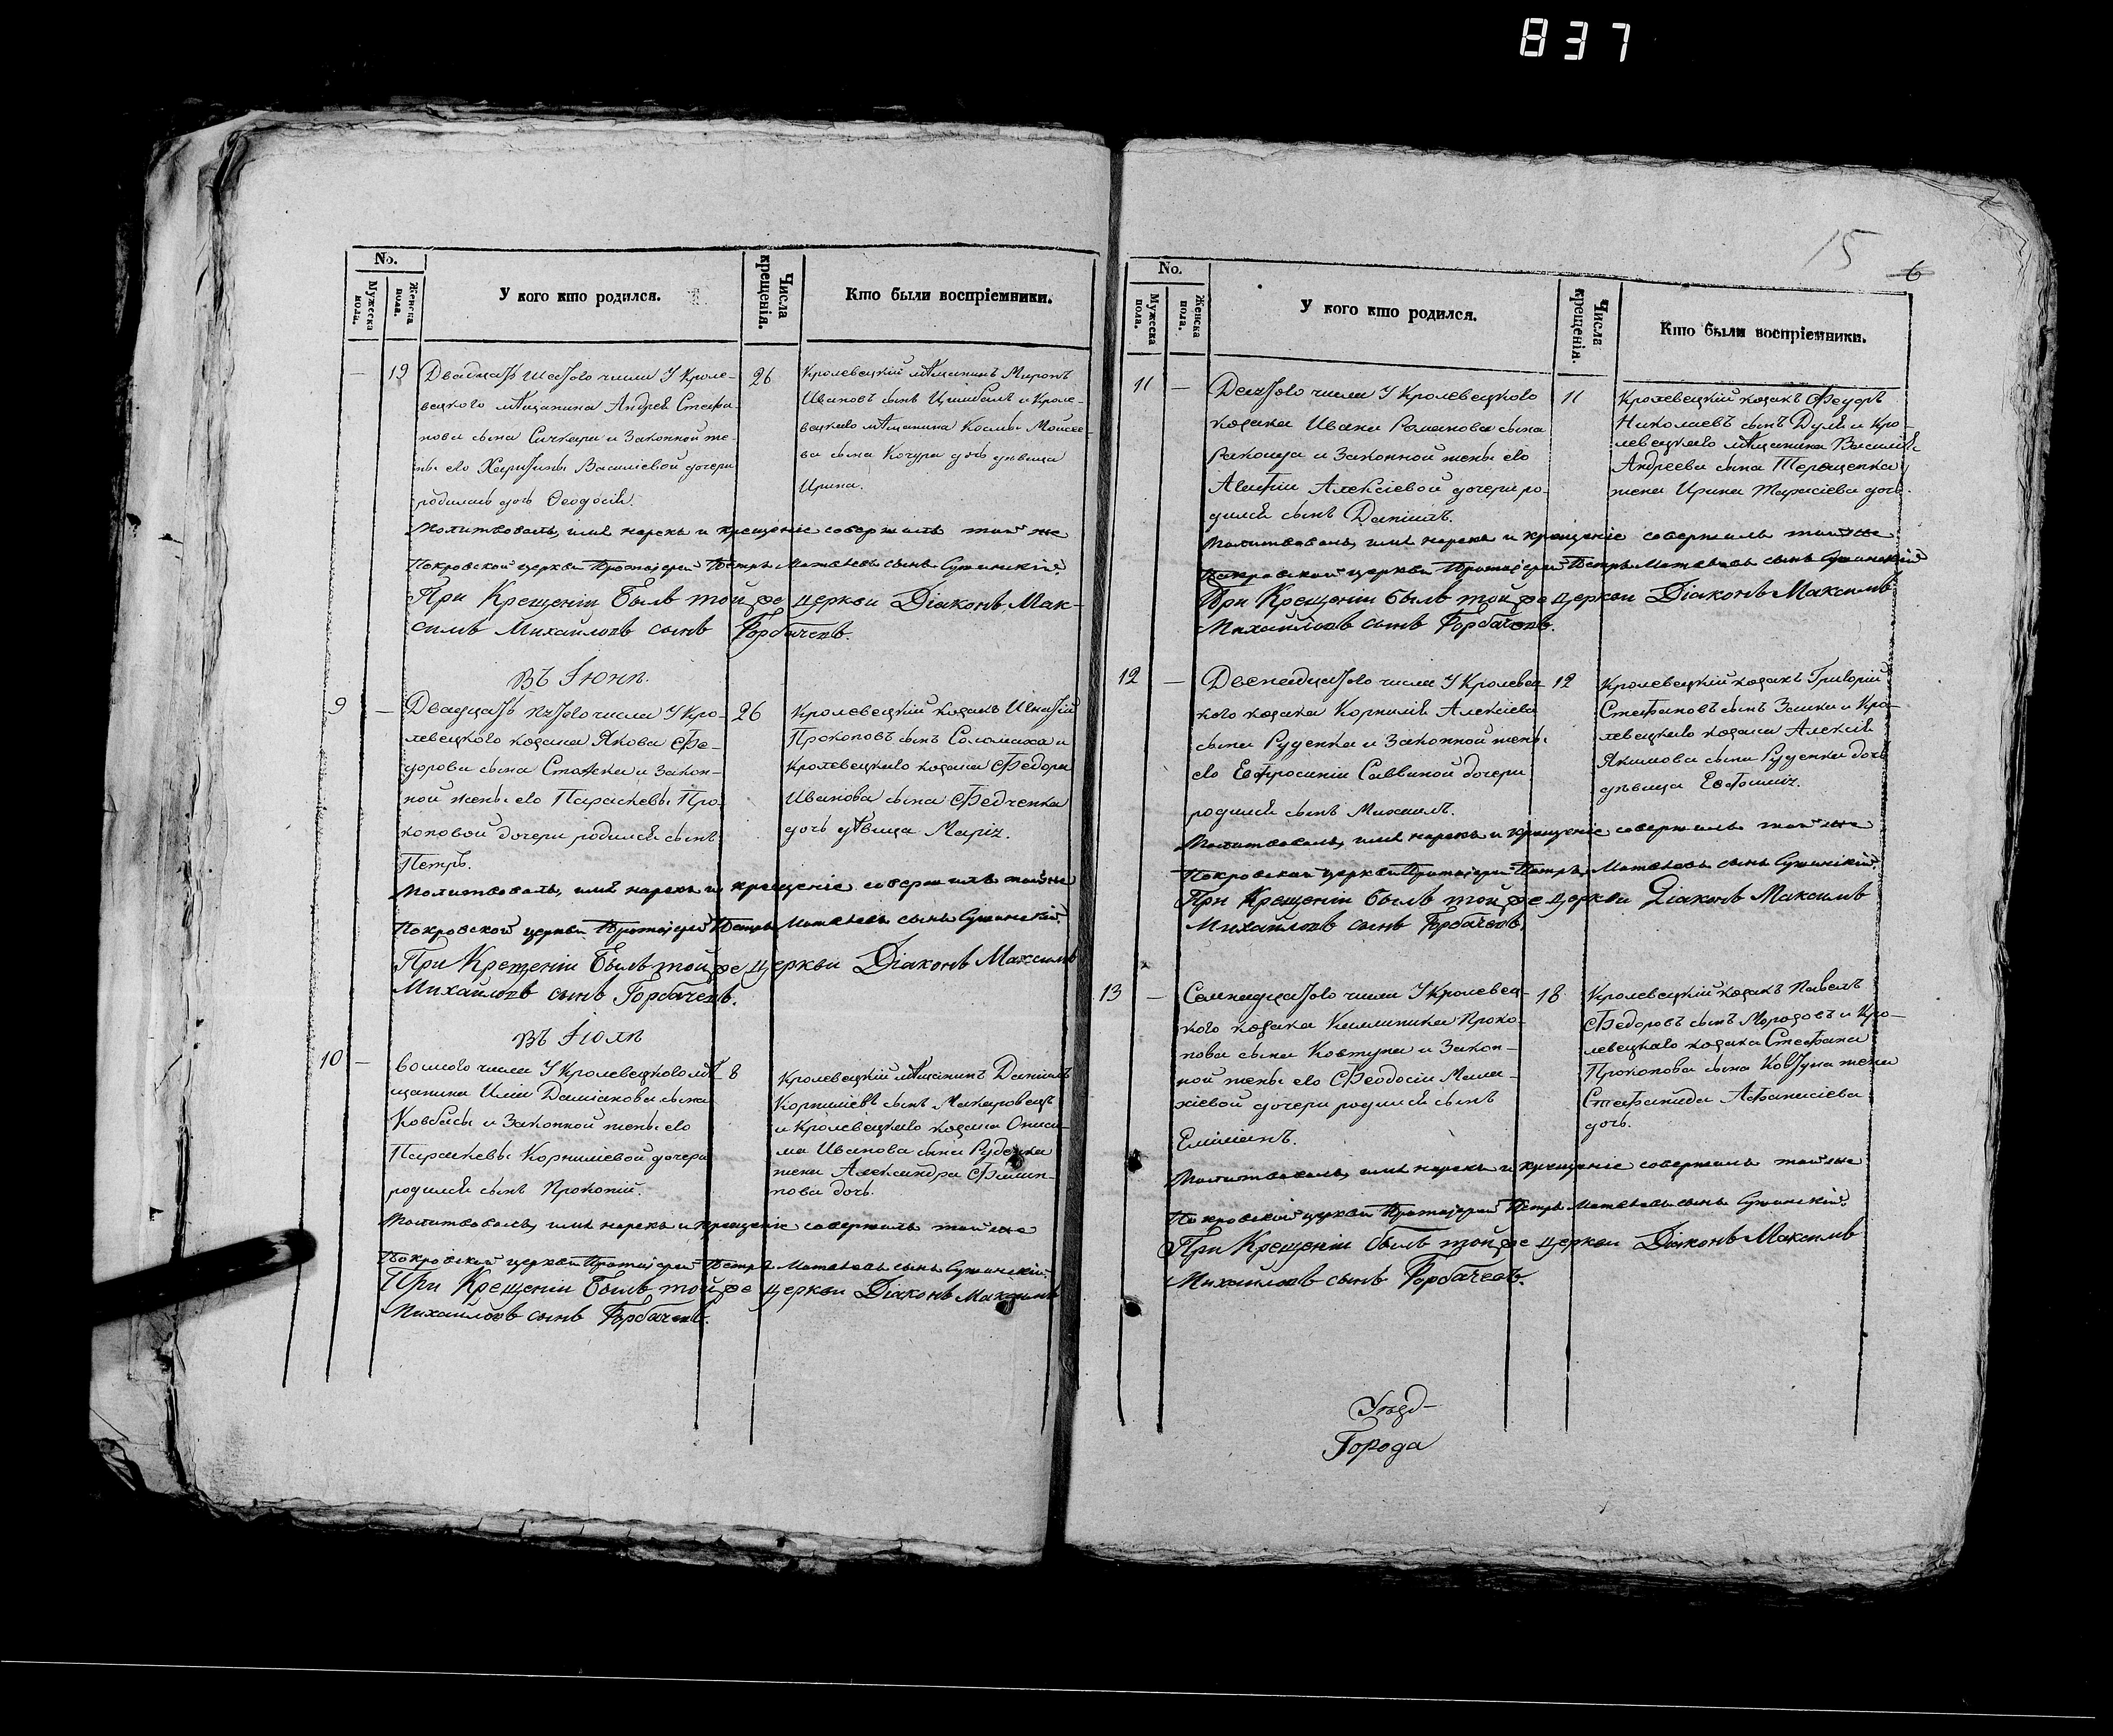 837
No.
Мужеска пола.
Женска пола.
У кого кто родился.
Числа крещенія.
Кто были воспріемники.
— 19 Двадцать шестого числа У Кроле-
вецкого мѣщанина Андрея Стефа-
нова сына Сичкаря и Законной же-
ны его Харитины Василіевой дочери
родилась дочь Ѳеодосія.
26
Кролевецкій мѣщанинъ Миронъ
Ивановъ сынъ и Кроле-
вецкаго мѣщанина Космы Моисее-
ва сына Кочуры дочь дѣвица
Ирина.
Молитвовалъ, имя нарекъ и крещеніе совершилъ той же
Покровской церкви Протоіерей Петръ Матвѣевъ сынъ
При Крещеніи былъ той же церкви Діаконъ Мак-
симъ Михайловъ сынъ Горбачевъ.
Въ Іюнѣ.
9 — Двадцать пятого числа У Кро-
левецкого козака Якова Фе-
дорова сына и Закон-
ной жены его Параскевы Про-
коповой дочери родился сынъ
Петръ.
26
Кролевецкій козакъ Игнатій
Прокоповъ сынъ Соломаха и
Кролевецкаго козака Федора
Иванова сына Федченка
дочь дѣвица Марія.
Молитвовалъ, имя нарекъ и крещеніе совершилъ той же
Покровской церкви Протоіерей Петръ Матвѣевъ сынъ
При Крещеніи былъ той же церкви Діаконъ Максимъ
Михайловъ сынъ Горбачевъ.
Въ Іюлѣ
10 — Восмого числа У Кролевецкого мѣ-
щанина Иліи Даміанова сына
Ковбасы и Законной жены его
Параскевы Корниліевой дочери
родился сынъ Прокопій.
8
Кролевецкій мѣщанинъ Даніилъ
Корниліевъ сынъ Макаровецъ
и Кролевецкаго козака Ониси-
ма Иванова сына Руденка
жена Александра Филип-
пова дочь.
Молитвовалъ, имя нарекъ и крещеніе совершилъ той же
Покровской церкви Протоіерей Петръ Матвѣевъ сынъ
При Крещеніи былъ той же церкви Діаконъ Максимъ
Михайловъ сынъ Горбачевъ.
15 6
No.
Мужеска пола.
Женска пола.
У кого кто родился.
Числа крещенія.
Кто были воспріемники.
11 — Десятого числа У Кролевецкого
козака Ивана Романова сына
и Законной жены его
Агафіи Алексіевой дочери ро-
дился сынъ Даніилъ.
11
Кролевецкій козакъ Федоръ
Николаевъ сынъ и Кро-
левецкаго мѣщанина Василія
Андреева сына Терещенка
жена Ирина Тарасіева дочь.
Молитвовалъ, имя нарекъ и крещеніе совершилъ той же
Покровской церкви Протоіерей Петръ Матвѣевъ сынъ
При Крещеніи былъ той же церкви Діаконъ Максимъ
Михайловъ сынъ Горбачевъ.
12 — Двенадцатого числа У Кролевец-
кого козака Корнилія Алексіева
сына Руденка и Законной жены
его Евфросиніи Саввиной дочери
родился сынъ Михаилъ.
12
Кролевецкій козакъ Григорій
Стефановъ сынъ Заика и Кро-
левецкаго козака Алексія
Якимова сына Руденка дочь
дѣвица Евфимія.
Молитвовалъ, имя нарекъ и крещеніе совершилъ той же
Покровской церкви Протоіерей Петръ Матвѣевъ сынъ
При Крещеніи былъ той же церкви Діаконъ Максимъ
Михайловъ сынъ Горбачевъ.
13 — Семнадцатого числа У Кролевец-
кого козака Каллиника Проко-
пова сына Ковтуна и Закон-
ной жены его Феодосіи Мала-
хіевой дочери родился сынъ
Емиліанъ.
18
Кролевецкій козакъ Павелъ
Федоровъ сынъ Морозовъ и Кро-
левецкаго козака Стефана
Прокопова сына Ковтуна жена
Стефанида Афанасіева
дочь.
Молитвовалъ, имя нарекъ и крещеніе совершилъ той же
Покровской церкви Протоіерей Петръ Матвѣевъ сынъ
При Крещеніи былъ той же церкви Діаконъ Максимъ
Михайловъ сынъ Горбачевъ.
Уѣзд-
Города